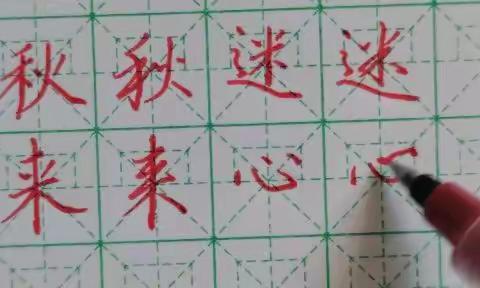 秋秋迷迷
来来心心